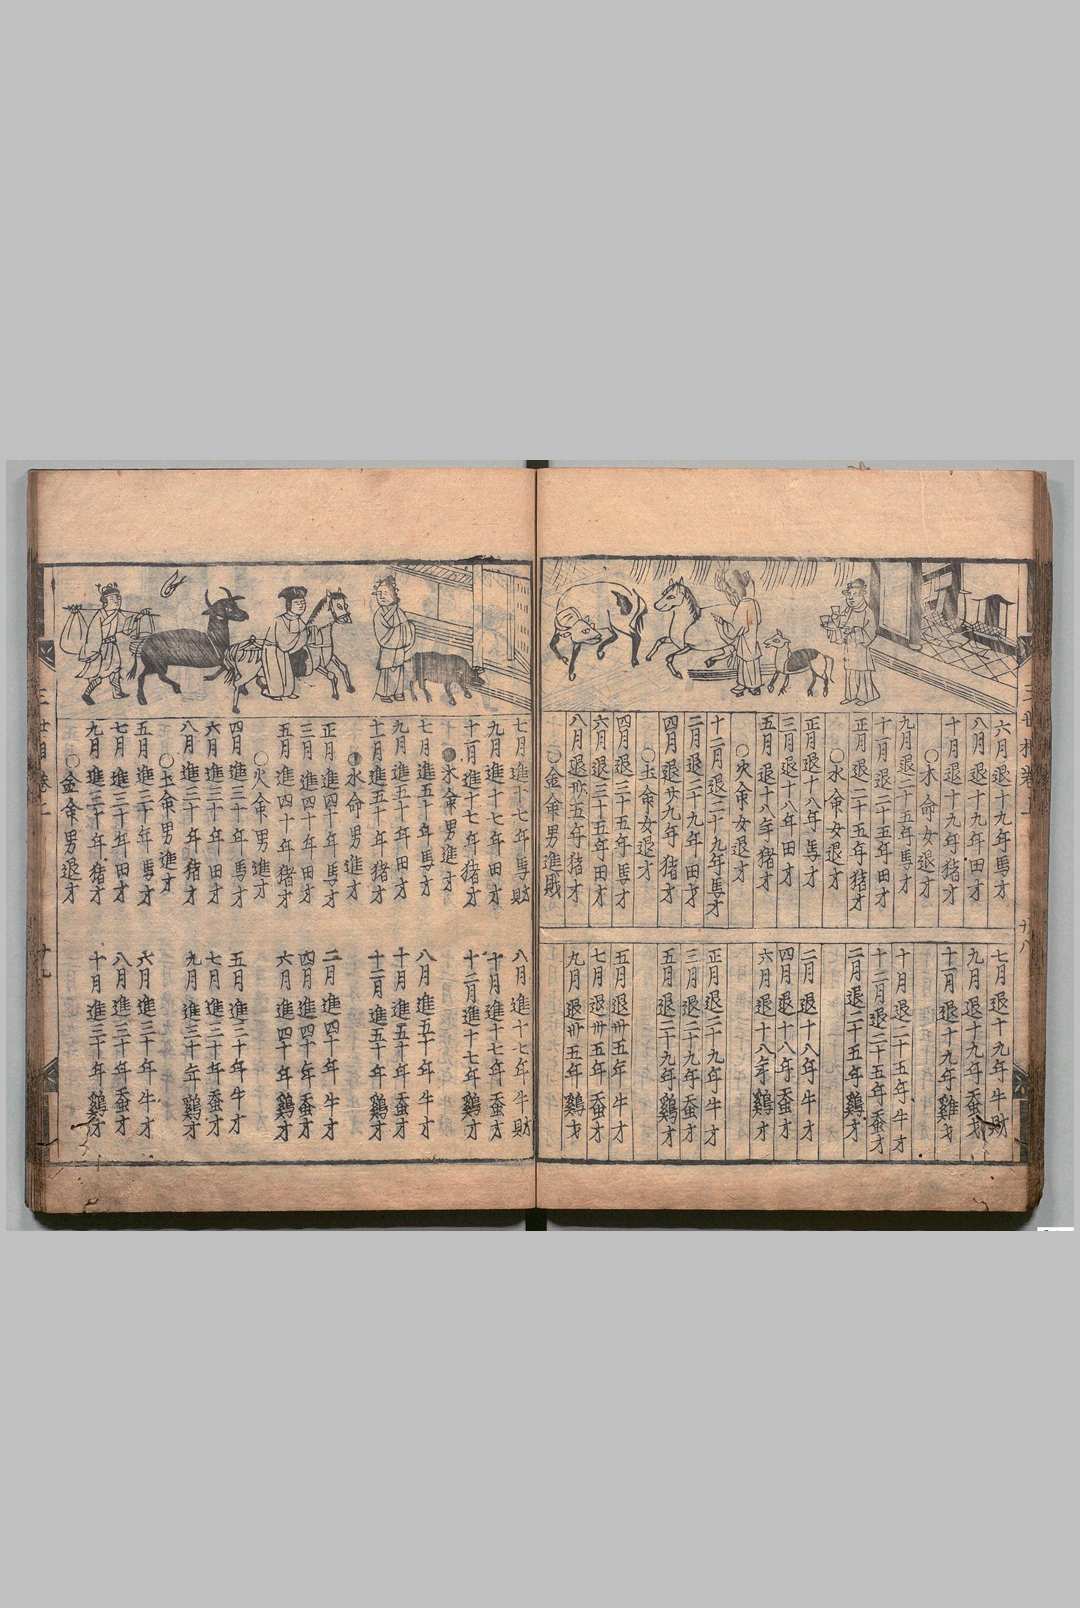 三世相卷上
十八
六月退十九年馬才
七月退十九年牛財
八月退十九年田才
九月退十九年蚕才
十月退十九年猪才
十一月退十九年雞才
○木命女退才
九月退二十五年馬才
十月退二十五年牛才
十一月退二十五年田才
十二月退二十五年蚕才
正月退二十五年猪才
二月退二十五年鷄才
○水命女退才
正月退十八年馬才
二月退十八年牛才
三月退十八年田才
四月退十八年蚕才
五月退十八年猪才
六月退十八年鷄才
○火命女退才
十二月退二十九年馬才
正月退二十九年牛才
二月退二十九年田才
三月退二十九年蚕才
四月退廿九年猪才
五月退二十九年鷄才
○土命女退才
四月退三十五年馬才
五月退卅五年牛才
六月退三十五年田才
七月退卅五年蚕才
八月退卅五年猪才
九月退卅五年鷄才
○金命男進財
七月進十七年馬財
八月進十七年牛財
九月進十七年田才
十月進十七年蚕才
十一月進十七年猪才
十二月進十七年鷄才
●木命男進才
七月進五十年馬才
八月進五十年牛才
九月進五十年田才
十月進五十年蚕才
十一月進五十年猪才
十二月進五十年鷄才
●水命男進才
正月進四十年馬才
二月進四十年牛才
三月進四十年田才
四月進四十年蚕才
五月進四十年猪才
六月進四十年鷄才
○火命男進才
四月進三十年馬才
五月進三十年牛才
六月進三十年田才
七月進三十年蚕才
八月進三十年猪才
九月進三十年鷄才
○土命男進才
五月進三十年馬才
六月進三十年牛才
七月進三十年田才
八月進三十年蚕才
九月進三十年猪才
十月進三十年鷄才
○金命男退才
三世相卷上
十九